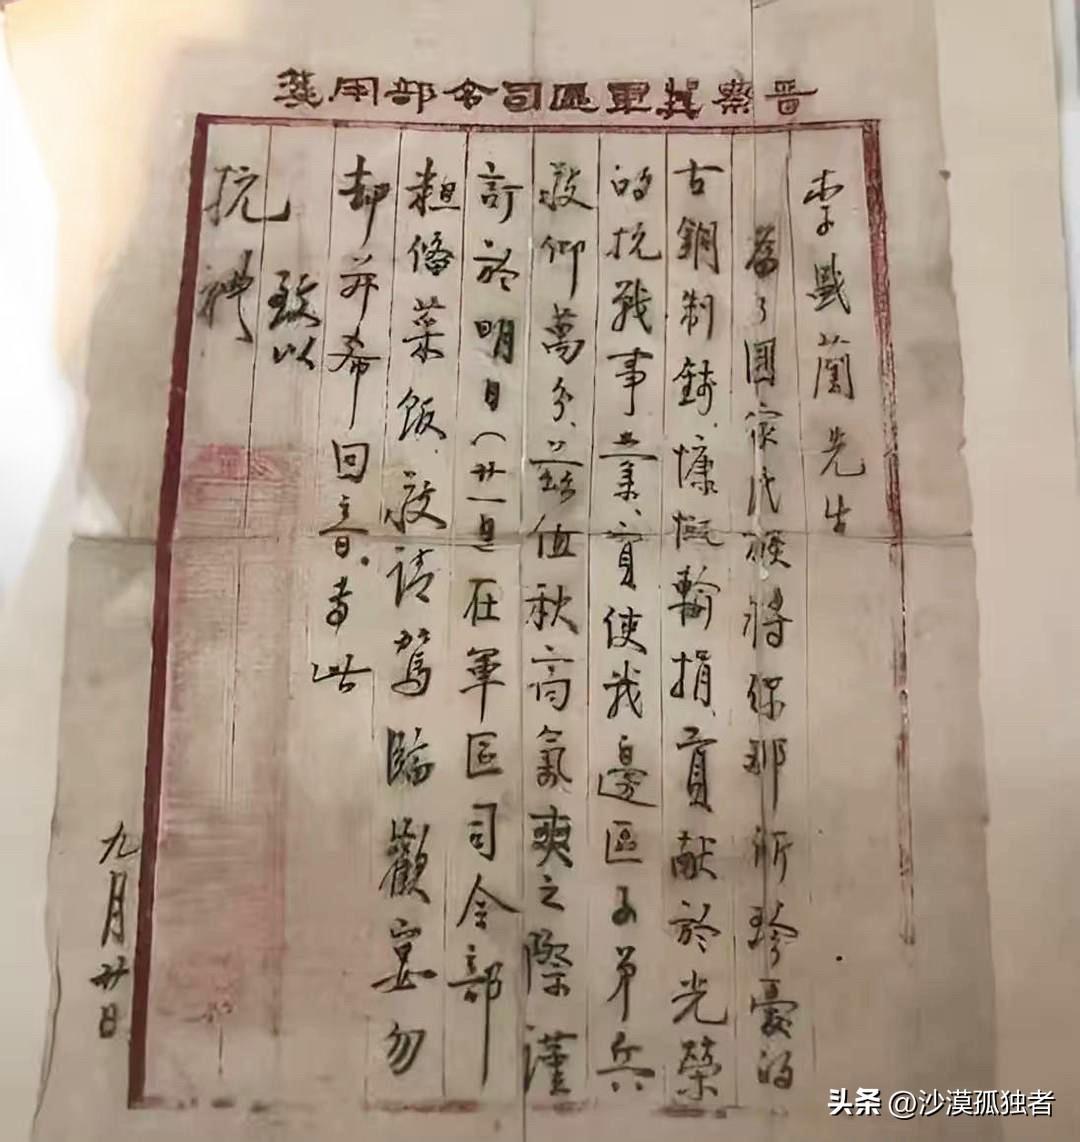 晋察冀軍區司令部用箋
李盛蘭先生
為了國家民族將你那所珍愛的
古銅制錢、慷慨輸捐、貢献於光榮
的抗戰事業、實使我邊區子弟兵
敬仰萬分、茲值秋高氣爽之際謹
訂於明日(廿一日)在軍區司令部
粗備菜飯、敬請駕臨歡宴勿
却并希回音。專此
致以
抗禮
九月廿日
头条 @沙漠孤独者